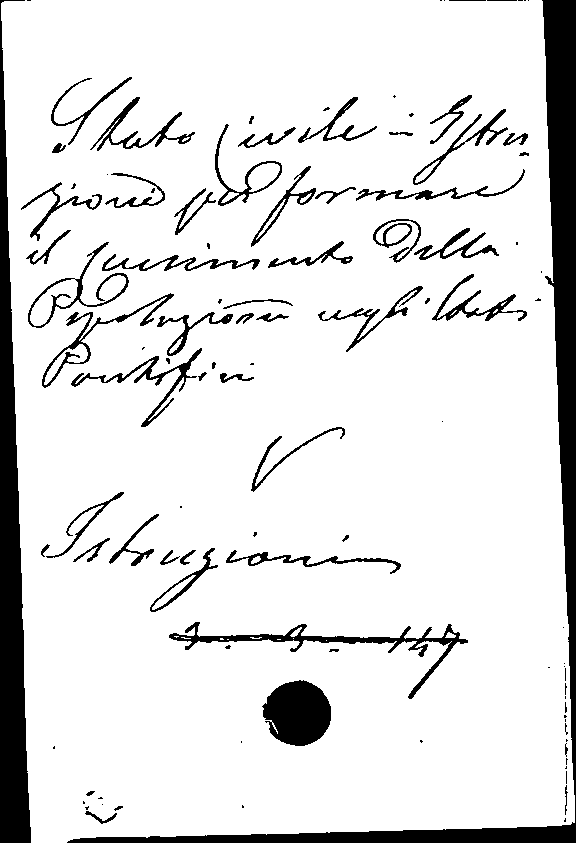 Stato Civile - Istru-
zione per formare
il censimento della
Popolazione negli Stati
Pontifici
V
Istruzioni
3. B. 147